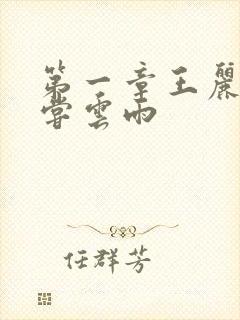 第一章王麗
嘗雲雨
任群芳